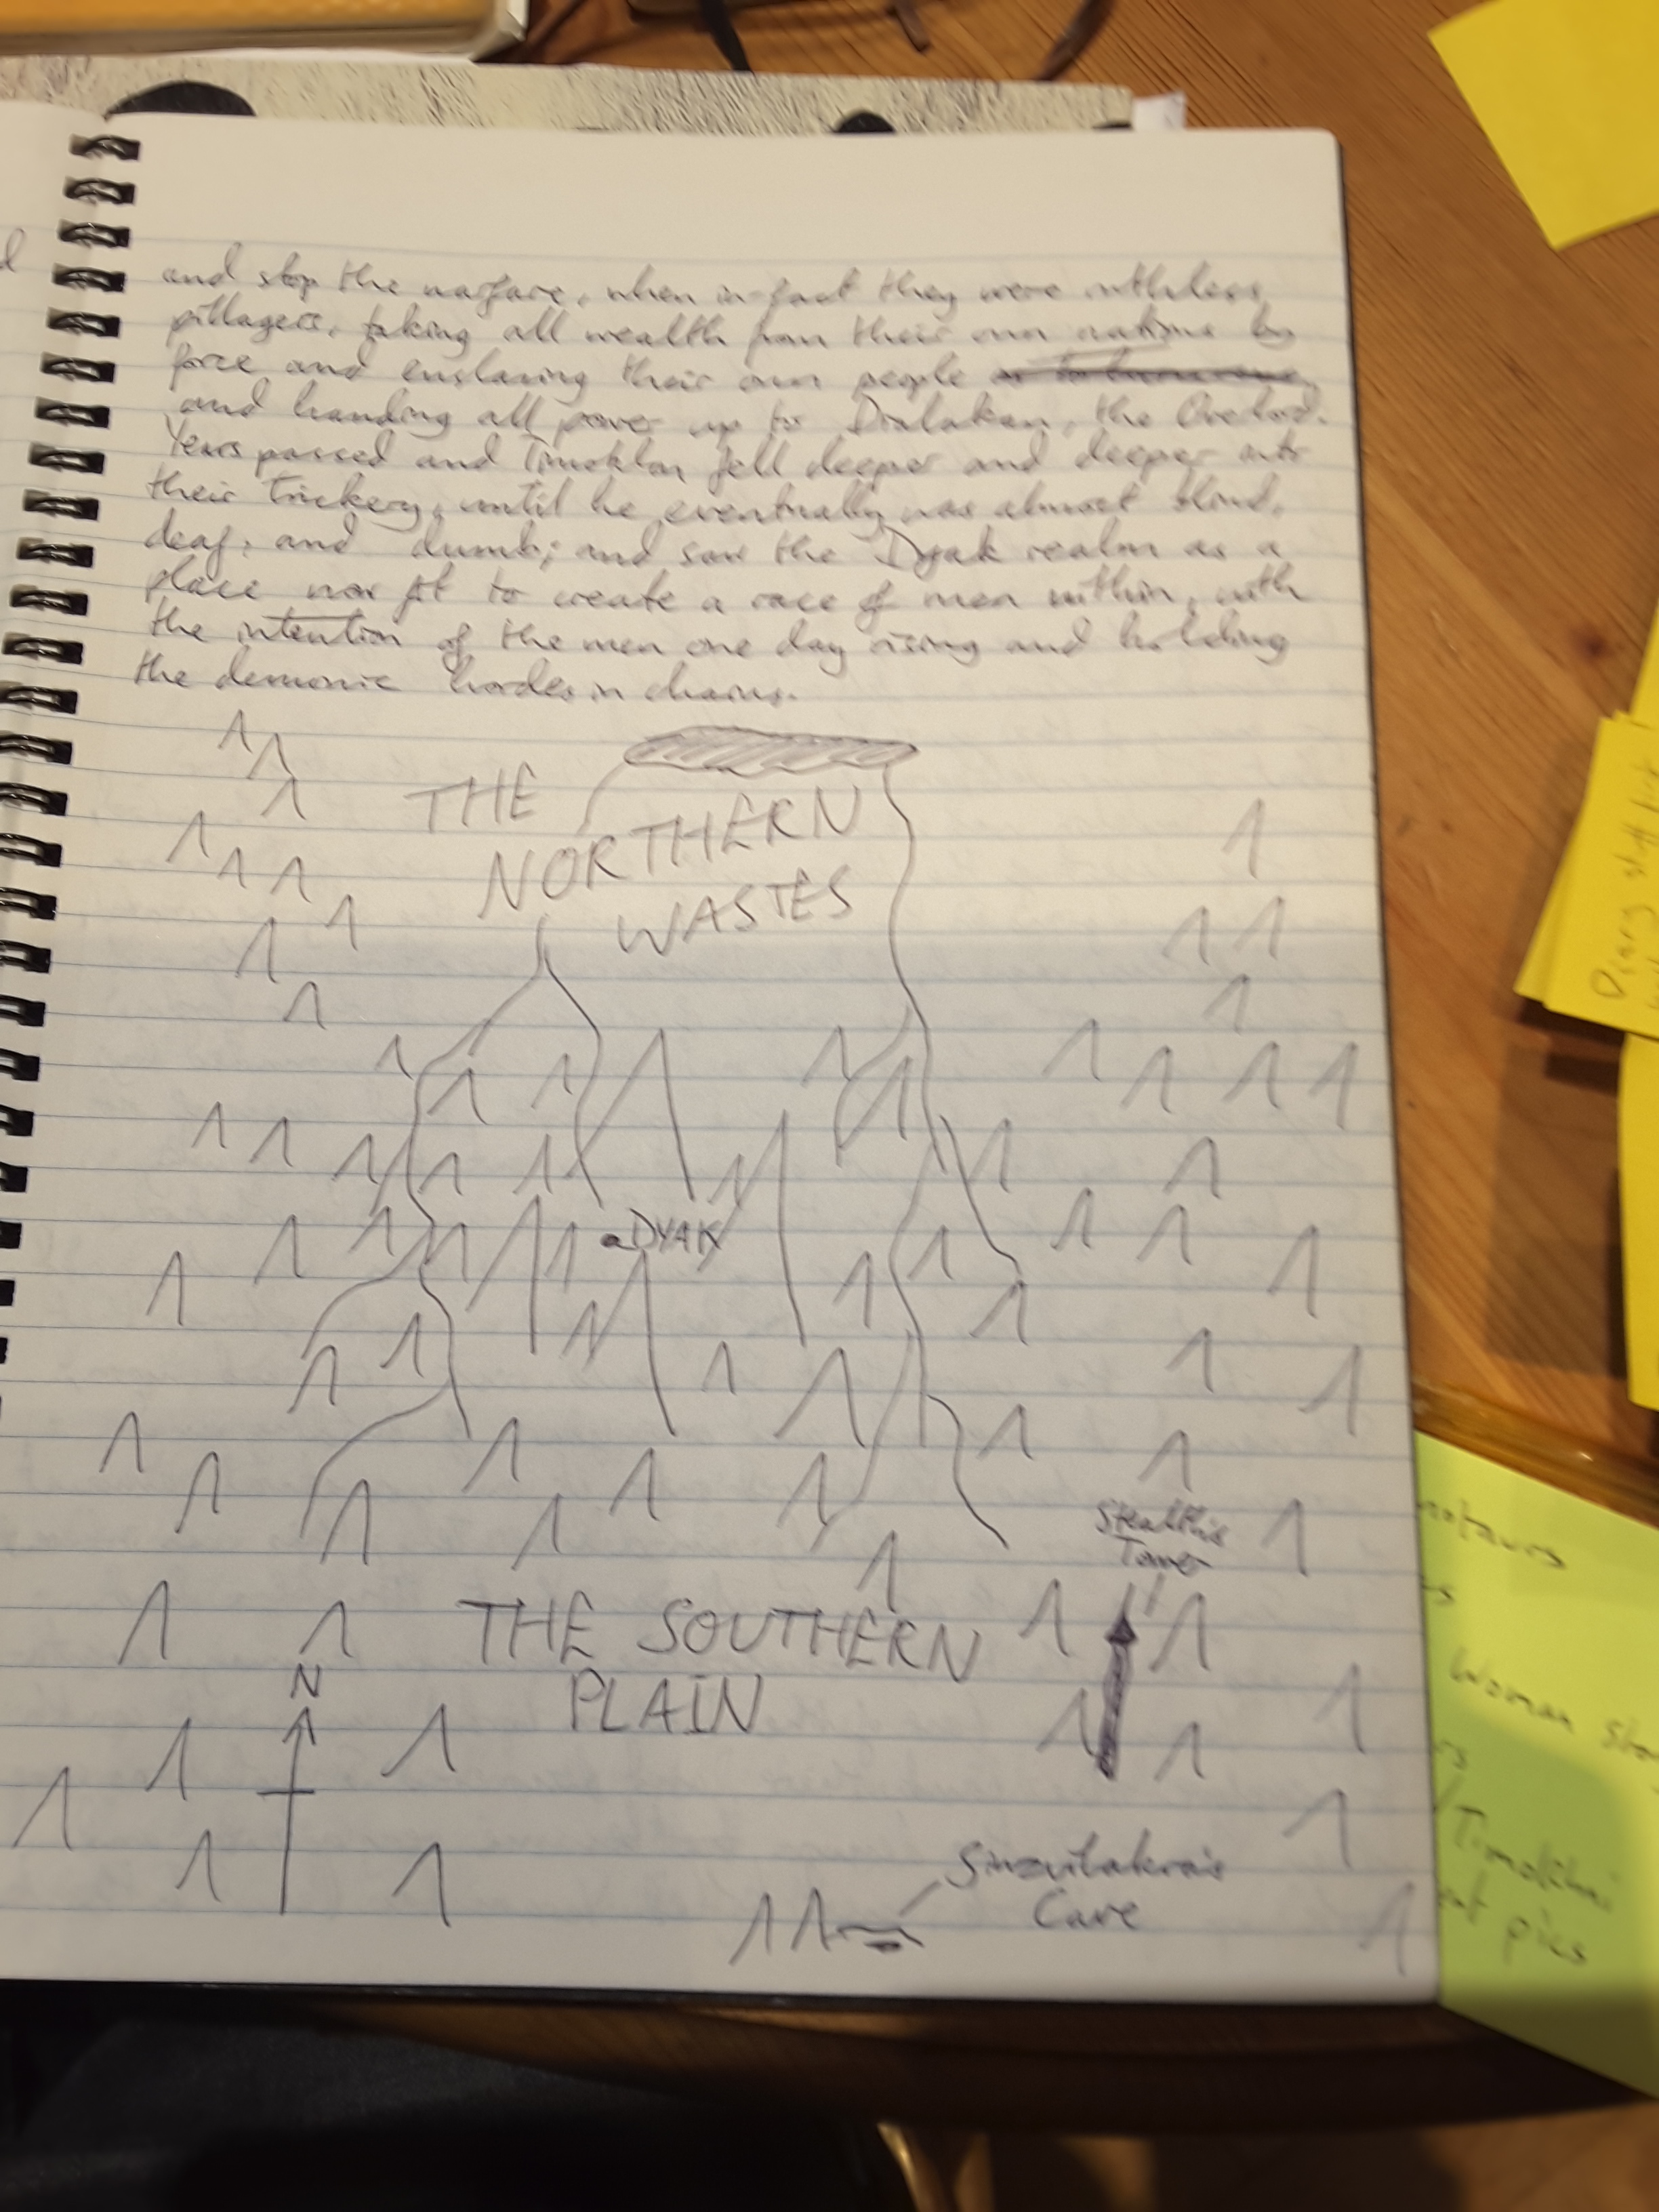 and stop the warfare, when in-fact they were ruthless
pillagers, taking all wealth from their own nations by
force and enslaving their own people
and handing all power up to Dralakan, the Overlord.
Years passed and Timoklan fell deeper and deeper into
their trickery, until he eventually was almost blind,
deaf, and dumb; and saw the Dyak realm as a
place now fit to create a race of men within, with
the intention of the men one day rising and holding
the demonic hordes in chains.
THE
NORTHERN
WASTES
DYAK
Tower
THE SOUTHERN
PLAIN
N
Cave
Diary
Woman
pics